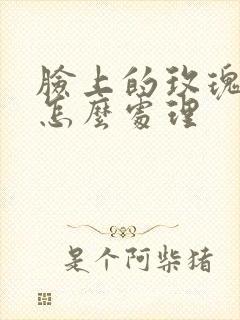 臉上的玫瑰
怎麼處理
是个阿柴猪